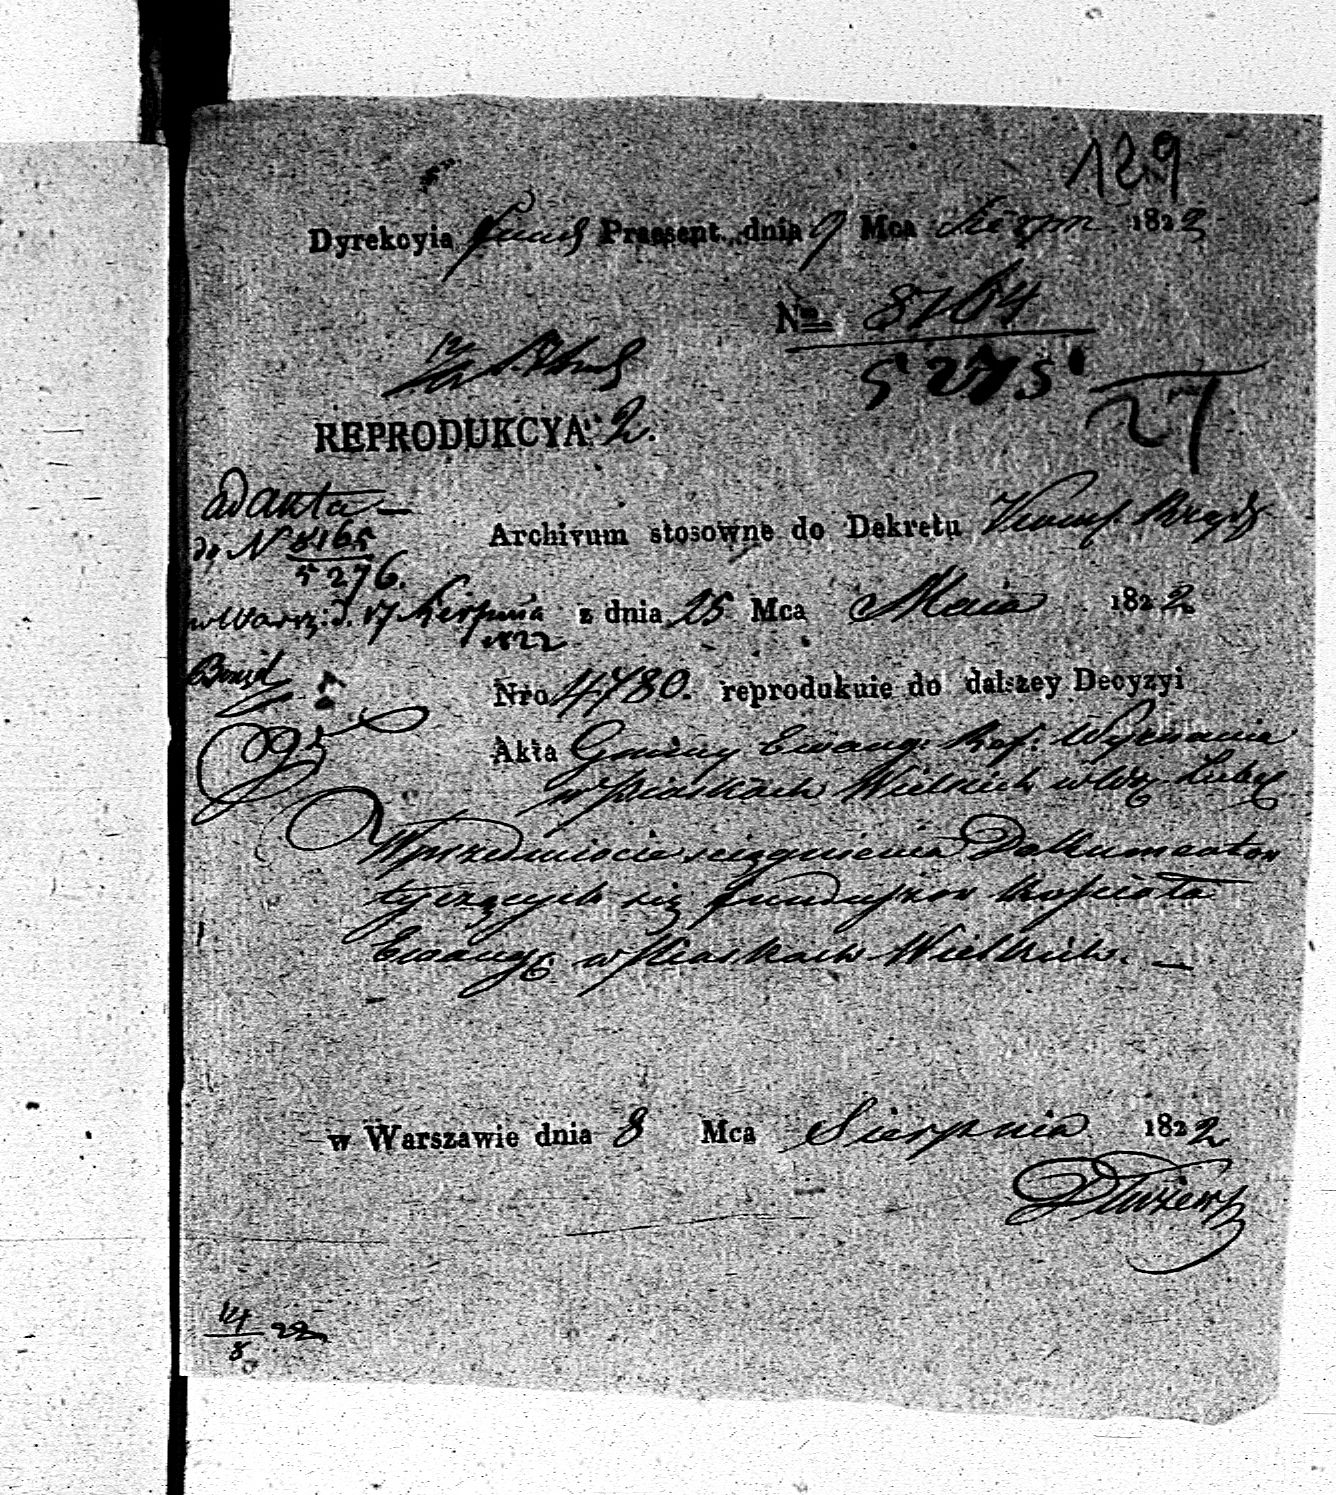 129
Dyrekcyia Fund Praesent. dnia 9 Mca Sierpn 1822
No 8764
5275
27
REPRODUKCYA 2.
ad akta
do N 8165
5276.
w Warsz. d. 17 Sierpnia
1822
Archivum stosowne do Dekretu
z dnia 25 Mca Maia 1822
Nro 4780. reprodukuie do dalszey Decyzyi
Akta Gminy Ewang: Ref: Wyznania
w Piaskach Wielkich w Wdz. Lubel
W przedmiocie sciągnienia Dokumentow
tyczących się funduszow Kościoła
Ewang: w Piaskach Wielkich.
w Warszawie dnia 8 Mca Sierpnia 1822
14/8 22